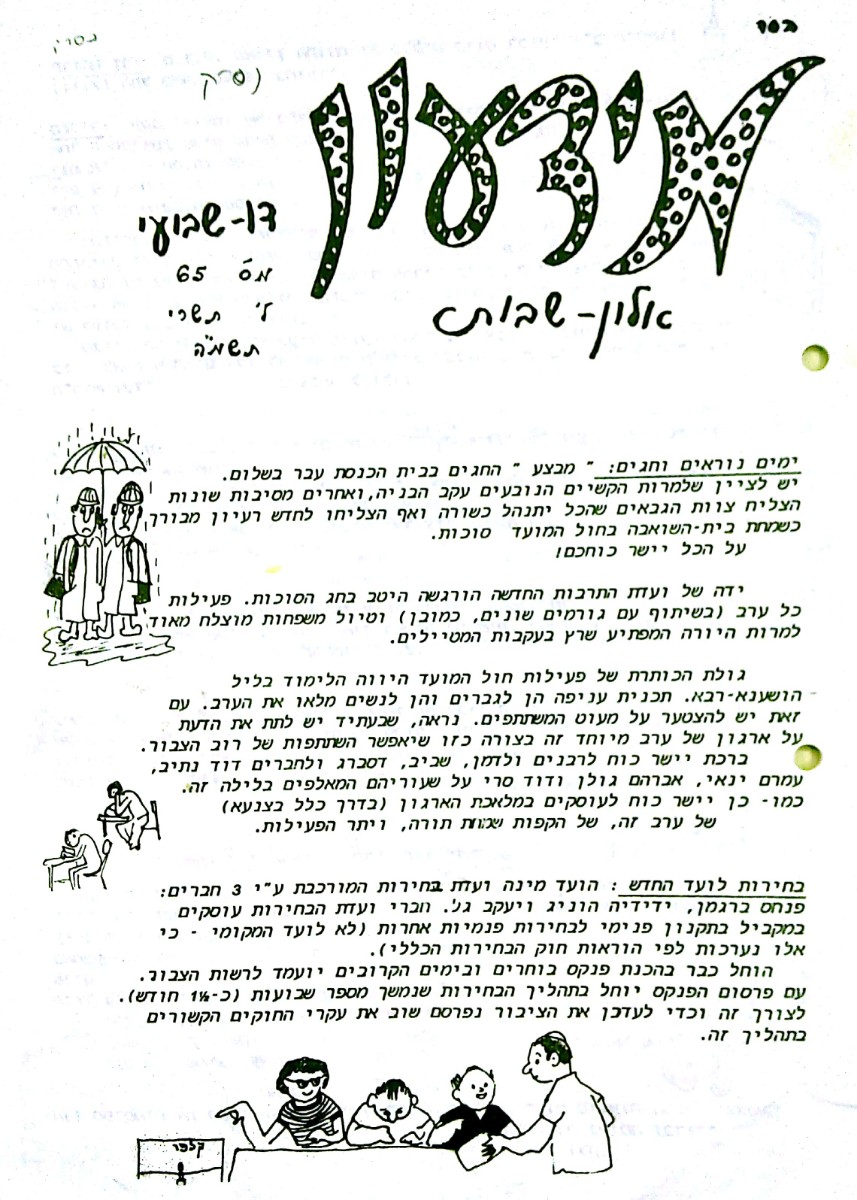 בסד
נסרק
נסרק
מידעון
אלון-שבות
דו-שבועי
מס' 65
ל' תשרי
תשמ"ה
ימים נוראים וחגים: " מבצע " החגים בבית הכנסת עבר בשלום.
יש לציין שלמרות הקשיים הנובעים עקב הבניה,ואחרים מסיבות שונות
הצליח צוות הגבאים שהכל יתנהל כשורה ואף הצליחו לחדש רעיון מבורך
כשמחת בית-השואבה בחול המועד סוכות.
על הכל יישר כוחכם!
ידה של ועדת התרבות החדשה הורגשה היטב בחג הסוכות. פעילות
כל ערב (בשיתוף עם גורמים שונים, כמובן) וטיול משפחות מוצלח מאוד
למרות היורה המפתיע שרץ בעקבות המטיילים.
גולת הכותרת של פעילות חול המועד היווה הלימוד בליל
הושענא-רבא. תכנית עניפה הן לגברים והן לנשים מלאו את הערב. עם
זאת יש להצטער על מעוט המשתתפים. נראה, שבעתיד יש לתת את הדעת
על ארגון של ערב מיוחד זה בצורה כזו שיאפשר השתתפות של רוב הצבור.
ברכת יישר כוח לרבנים ולדמן, שביב, דסברג ולחברים דוד נתיב,
עמרם ינאי, אברהם גולן ודוד סרי על שעוריהם המאלפים בלילה זה.
כמו- כן יישר כוח לעוסקים במלאכת הארגון (בדרך כלל בצנעא)
של ערב זה, של הקפות שמחת תורה, ויתר הפעילות.
בחירות לועד החדש : הועד מינה ועדת בחירות המורכבת ע"י 3 חברים:
פנחס ברגמן, ידידיה הוניג ויעקב גל. חברי ועדת הבחירות עוסקים
במקביל בתקנון פנימי לבחירות פנמיות אחרות (לא לועד המקומי - כי
אלו נערכות לפי הוראות חוק הבחירות הכללי).
הוחל כבר בהכנת פנקס בוחרים ובימים הקרובים יועמד לרשות הצבור.
עם פרסום הפנקס יוחל בתהליך הבחירות שנמשך מספר שבועות (כ-1½ חודש).
לצורך זה וכדי לעדכן את הציבור נפרסם שוב את עקרי החוקים הקשורים
בתהליך זה.
קלפי